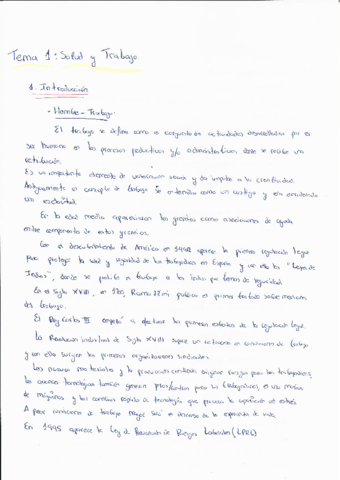 Tema 1: Salud y Trabajo
1. Introducción
- Hombre - Trabajo:
El trabajo se define como el conjunto de actividades desarrolladas por el
ser humano en los procesos productivos y/o administrativos donde se recibe una
retribución.
Es un importante elemento de valoración social y da impulso a la creatividad.
Antiguamente el concepto de trabajo se entendía como un castigo y era
una esclavitud.
En la edad media aparecieron los gremios como asociaciones de ayuda
entre componentes de estos gremios.
Con el descubrimiento de América en 1492 aparece la primera regulación legal
para proteger la salud y seguridad de los trabajadores en España y es las "Leyes de
Indias", donde se
En el Siglo XVIII, en 1700, Ramazzini publica el primer tratado sobre medicina
del trabajo.
El Rey Carlos III empezó a efectuar los primeros esbozos de la regulación legal.
La Revolución industrial del Siglo XVIII supuso un en condiciones de trabajo
y con ello surgen las primeras organizaciones sindicales.
Los procesos industriales y la producción conllevan originar riesgos para los trabajadores,
los avances tecnológicos también generan para los trabajadores, el uso masivo
de máquinas y los cambios rápidos de tecnología que provoca la aparición de estrés.
A peor condiciones de trabajo mayor será el descenso de la esperanza de vida.
En 1995 aparece la Ley de Prevención de Riesgos Laborales (LPRL)